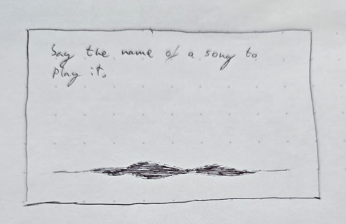 Say the name of a song to
play it.